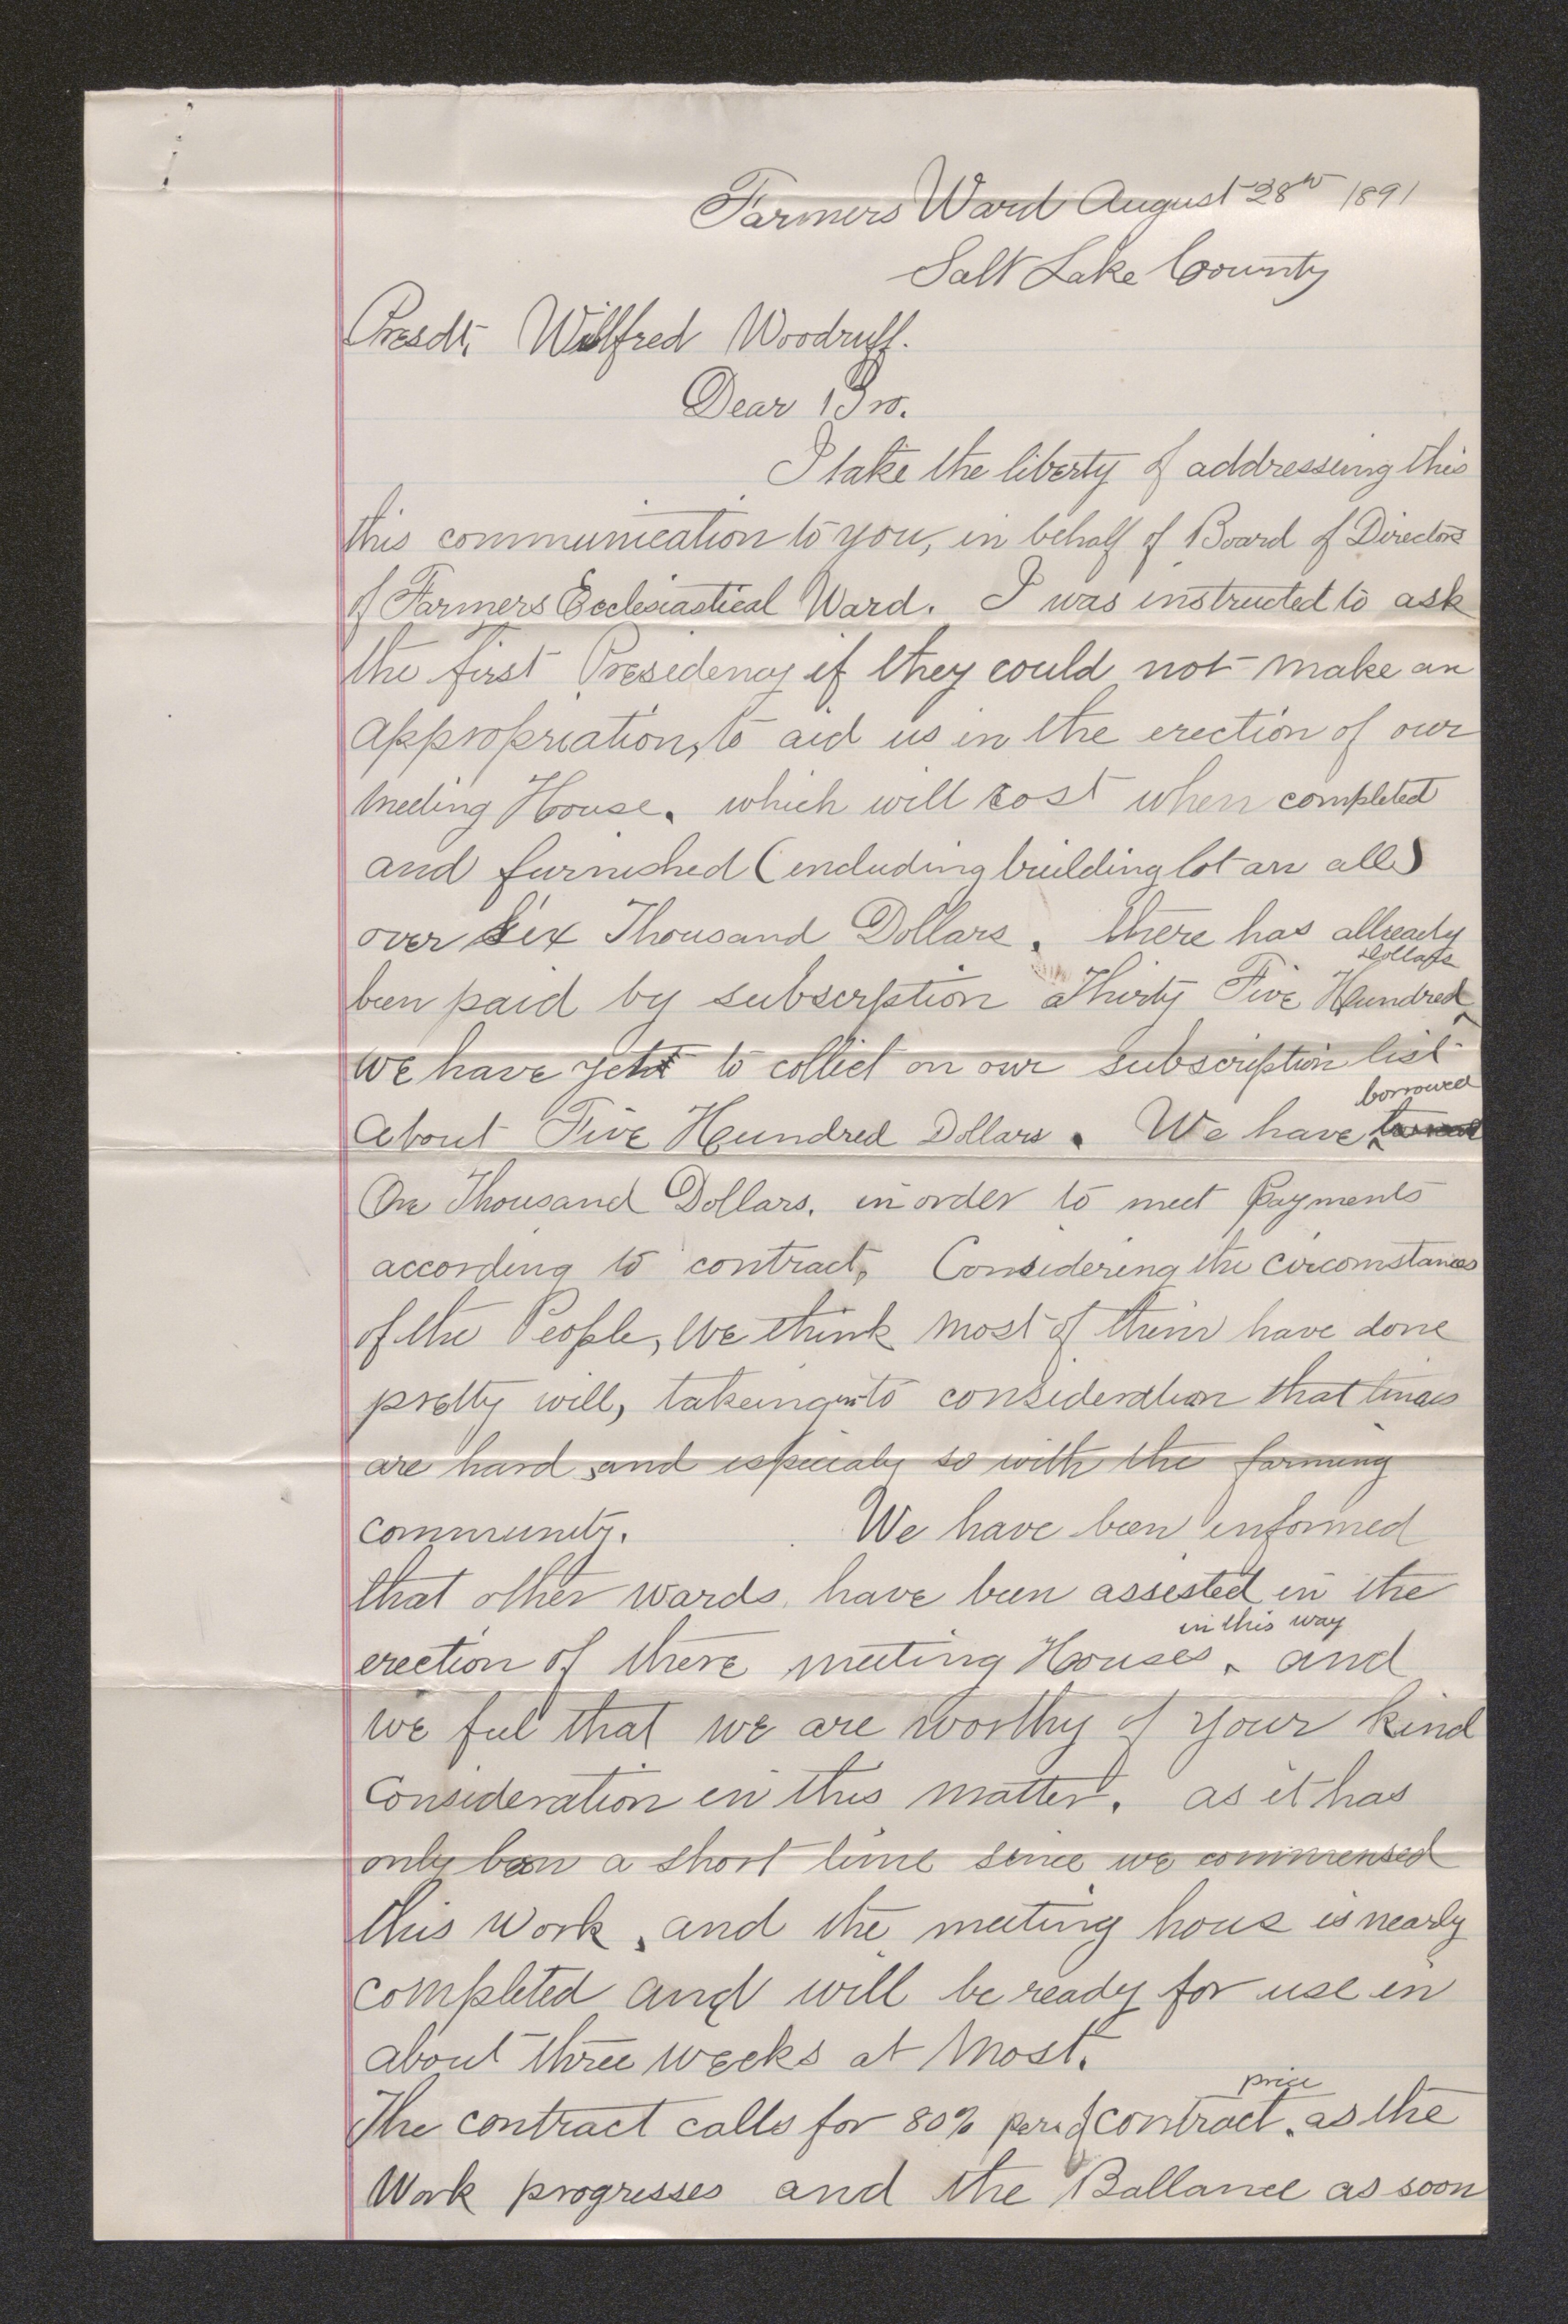 Farmers Ward August 28th 1891
Salt Lake County
Presdt, Wilfred Woodruff.
Dear Bro.
I take the liberty of addressing this
this communication to you, in behalf of Board of Directors
of Farmers Ecclesiastical Ward. I was instructed to ask
the first Presidency if they could not make an
appropriation, to aid us in the erection of our
meeting House. which will cost when completed
and furnished (including building lot an all)
over Six Thousand Dollars. there has allready
been paid by subscrption Thirty Five Hundred Dollars
we have yet to collect on our subscription list
about Five Hundred Dollars. We have borrowed
One Thousand Dollars. in order to meet Payments
according to contract, Considering the circomstances
of the People, we think most of them have done
pretty will, takeing into consideration that times
are hard, and especialy so with the farming
community. We have been informed
that other wards have been assisted in the
erection of there meeting Houses in this way, and
we feel that we are worthy of your kind
Consideration in this matter. as it has
only been a short time since we commensed
this work, and the meeting hous is nearly
completed and will be ready for use in
about three weeks at most.
The contract calls for 80% of contract price. as the
Work progresses and the Ballance as soon